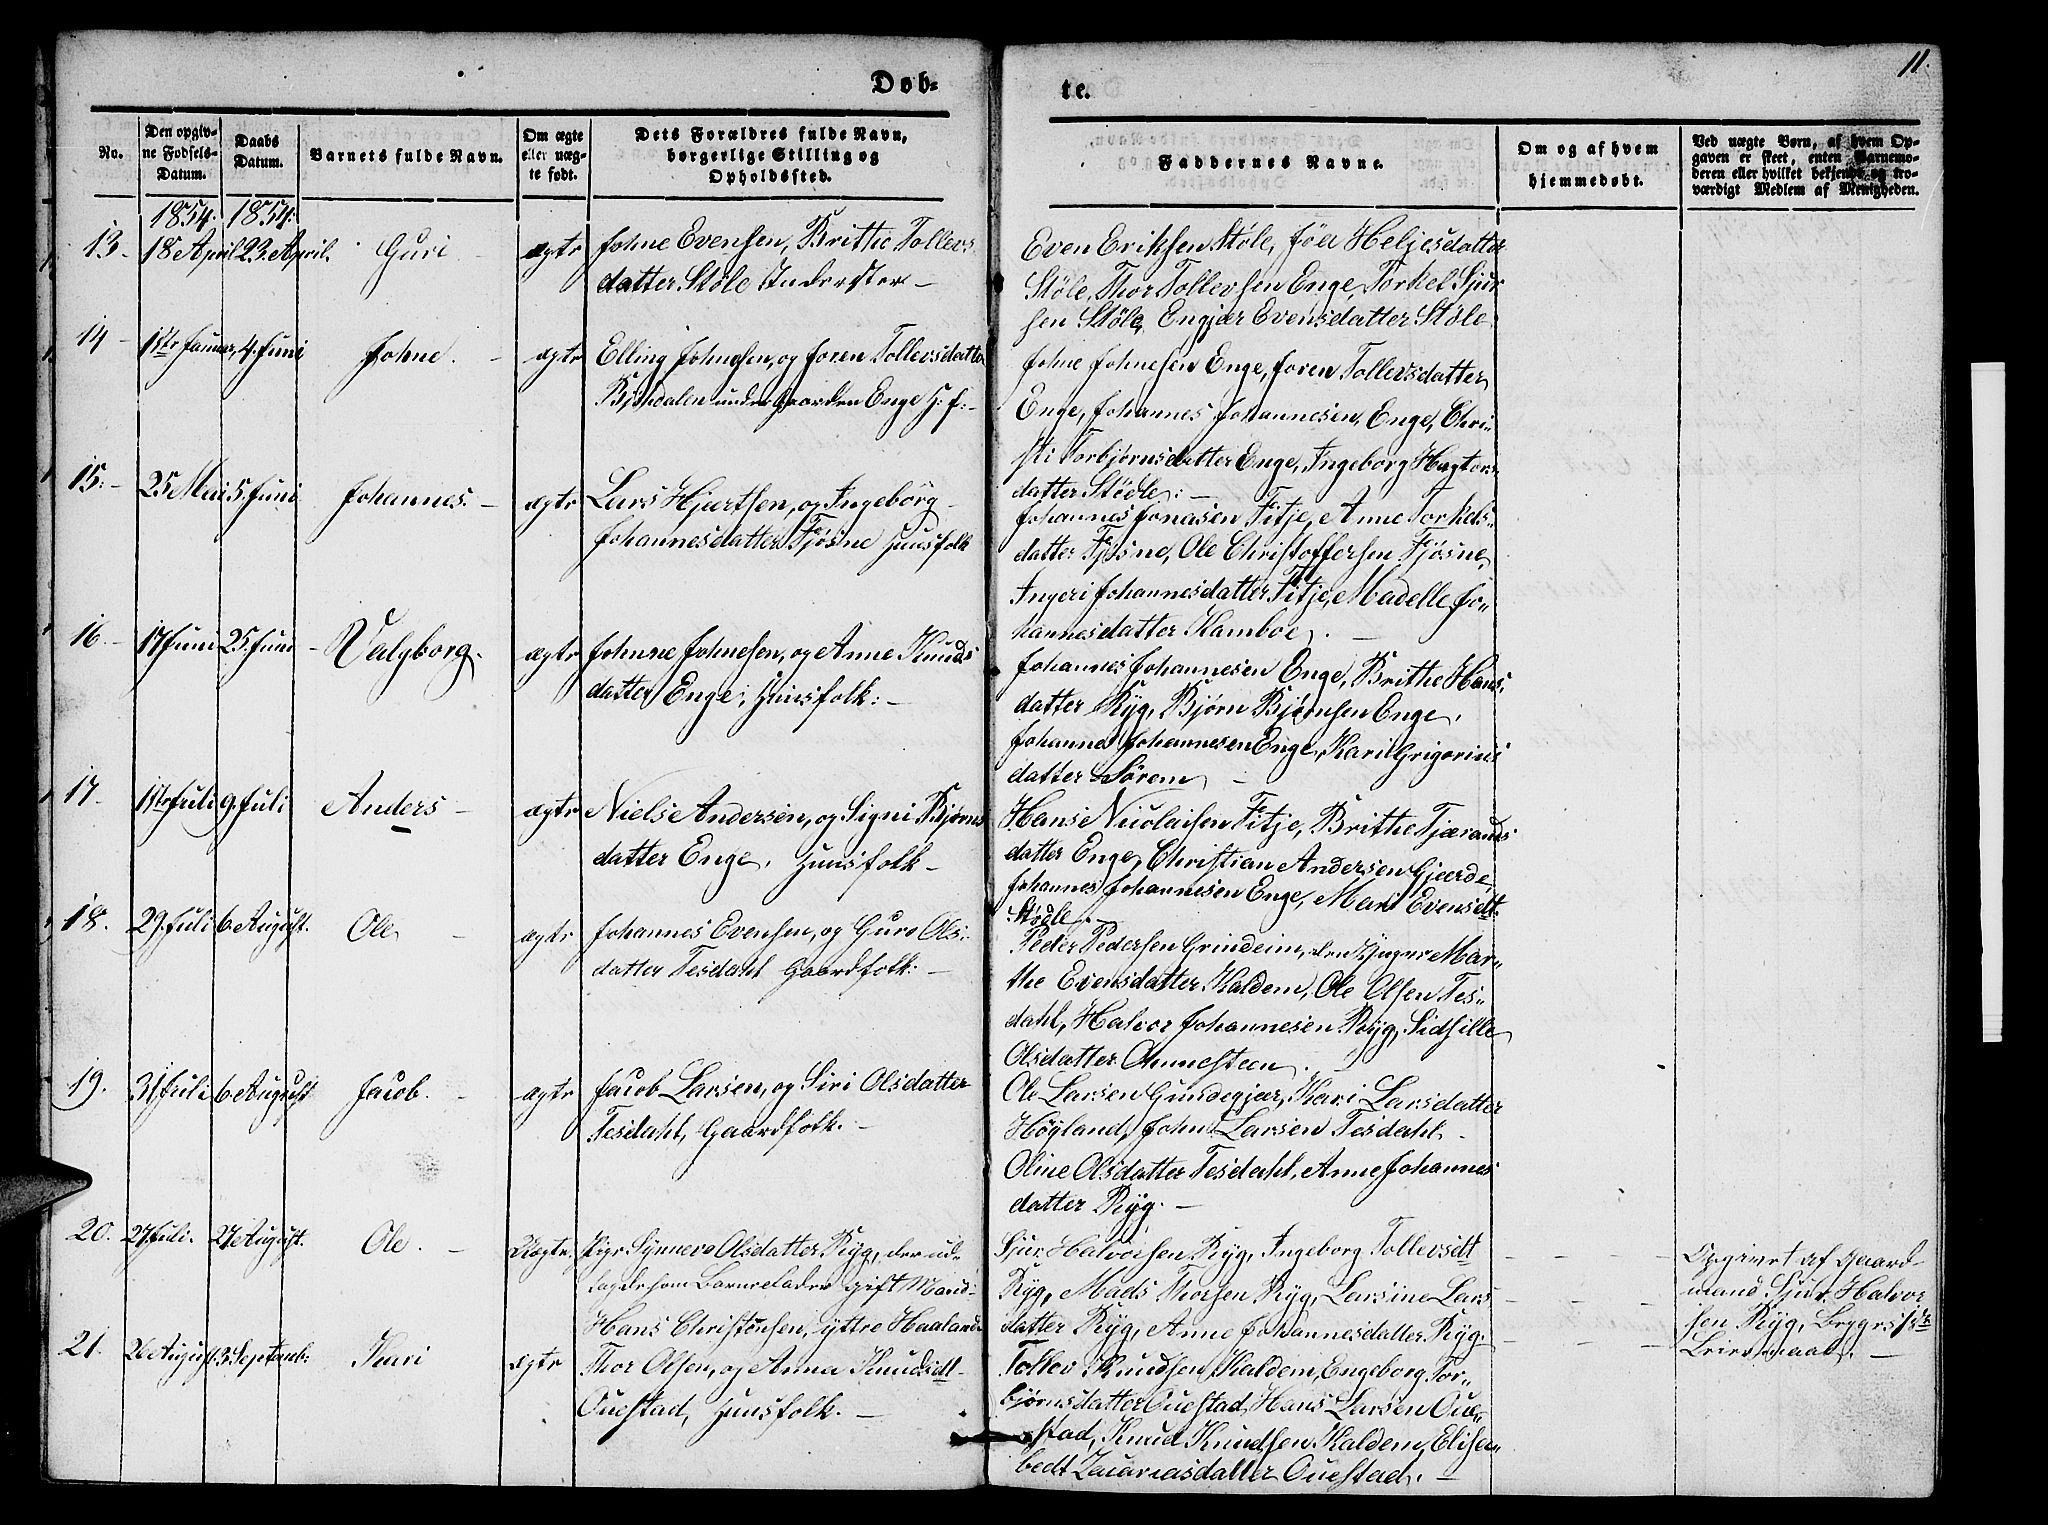 11.
Døb-
te.
No.
Den opgiv-
ne Fødsels-
Datum.
Daabs
Datum.
Barnets fulde Navn.
Om ægte
eller uæg-
te født.
Dets Forældres fulde Navn,
borgerlige Stilling og
Opholdssted.
Faddernes Navne.
Om og af hvem
hjemmedøbt.
Ved uægte Børn, af hvem Op-
gaven er skeet, enten Barnemo-
deren eller hvilket bekjendt og tro-
værdigt Medlem af Menigheden.
1854. 1854.
13. 18 April 23. April. Guri ægte
Johne Evensen, Brithe Tollevs
datter Støle
Even Eriksen Støle, Helgesdatter
Støle, Thor Tollevsen Enge, Torkel Sjur
sen Støle, Engjær Evensdatter Støle
14 1ste Januar, 4. Juni Johne. ægte
Elling Johnesen, og Joren Tollevsdatter
under Gaarden Enge H: f:
Johne Johnesen Enge, Joren Tollevsdatter
Enge, Johannes Johannesen, Enge, Chri-
sti Torbjørnsdatter Enge, Ingeborg
datter Stødle.
15. 25 Mai 5. Juni Johannes. ægte
Lars Hjertsen, og Ingeborg
Johannesdatter Fjøsne Huusfolk
Johannes Jonasen Fitje, Anne Torkels-
datter Fjøsne, Ole Christoffersen Fjøsne,
Ingeri Johannesdatter Fitje, Madelle Jo-
hannesdatter Kamboe.
16. 17 Juni 25. Juni Valgborg. ægte
Johnne Johnesen, og Anne Knuds
datter Enge, Huusfolk:
Johannes Johannesen Enge, Brithe Hans
datter Ryg, Bjørn Bjørnsen Enge,
Johannes Johannesen Enge, Kari Grigorius
datter Sørem
17. 1ste Juli 9. Juli Anders ægte
Niels Andersen, og Signi Bjørns
datter Enge, Huusfolk
Hans Nicolaisen Fitje, Brithe Tjærands
datter Enge, Christian Andersen Gjærde,
Johannes Johannesen Enge, Mari Evensdt.
Stødle.
18. 29. Juli 6. August. Ole ægte
Johannes Evensen, og Guro Ols-
datter Tesdahl Gaardfolk.
Peder Pedersen Grindeim, den Mar-
the Evensdatter Kaldem, Ole Olsen Tes-
dahl, Halvor Johannesen Ryg, Sidsille
Olsdatter
19. 31 Juli 6. August Jacob. ægte
Jacob Larsen, og Siri Olsdatter
Tesdahl, Gaardfolk.
Ole Larsen Gundegjær, Kari Larsdatter
Høgland, John Larsen Tesdahl
Oline Olsdatter Tesdahl, Anne Johannes
datter Ryg.
20. 27 Juli. 27 August. Ole. Uægte.
Pige Synneva Olsdatter Ryg, der ud-
lagde som Barnefader gift Mand
Hans Christensen, yttre Haaland
Sjur Halvorsen Ryg, Ingeborg Tollevsdt
Ryg, Mads Thorsen Ryg, Larsine Lars
datter Ryg, Anne Johannesdatter Ryg.
Opgivet af Gaard-
mand Sjur Halvor
sen Ryg,
Leiermaal.
21. 26 August 3 Septemb: Kari ægte
Thor Olsen, og Anna Knudsdt
Ouestad, Huusfolk.
Tollev Knudsen Kaldem, Engeborg Tor-
bjørnsdatter Ouestad, Hans Larsen Oue-
stad, Knud Knudsen Kaldem, Elisa-
bedt Zacariasdatter Ouestad.